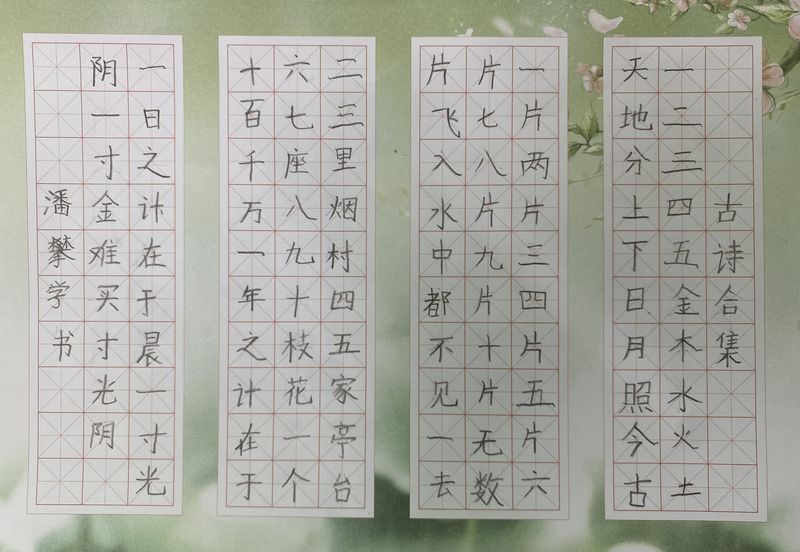 古诗合集
一二三四五金木水火土
天地分上下日月照今古
一片两片三四片五片六
片七八片九片十片无数
片飞入水中都不见一去
二三里烟村四五家亭台
六七座八九十枝花一个
十百千万一年之计在于
一日之计在于晨一寸光
阴一寸金难买寸光阴
潘攀学书